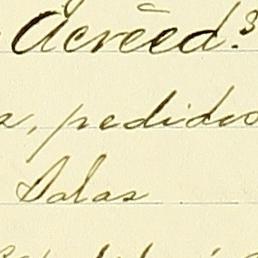 Acreed.s
, pedidos
Salas